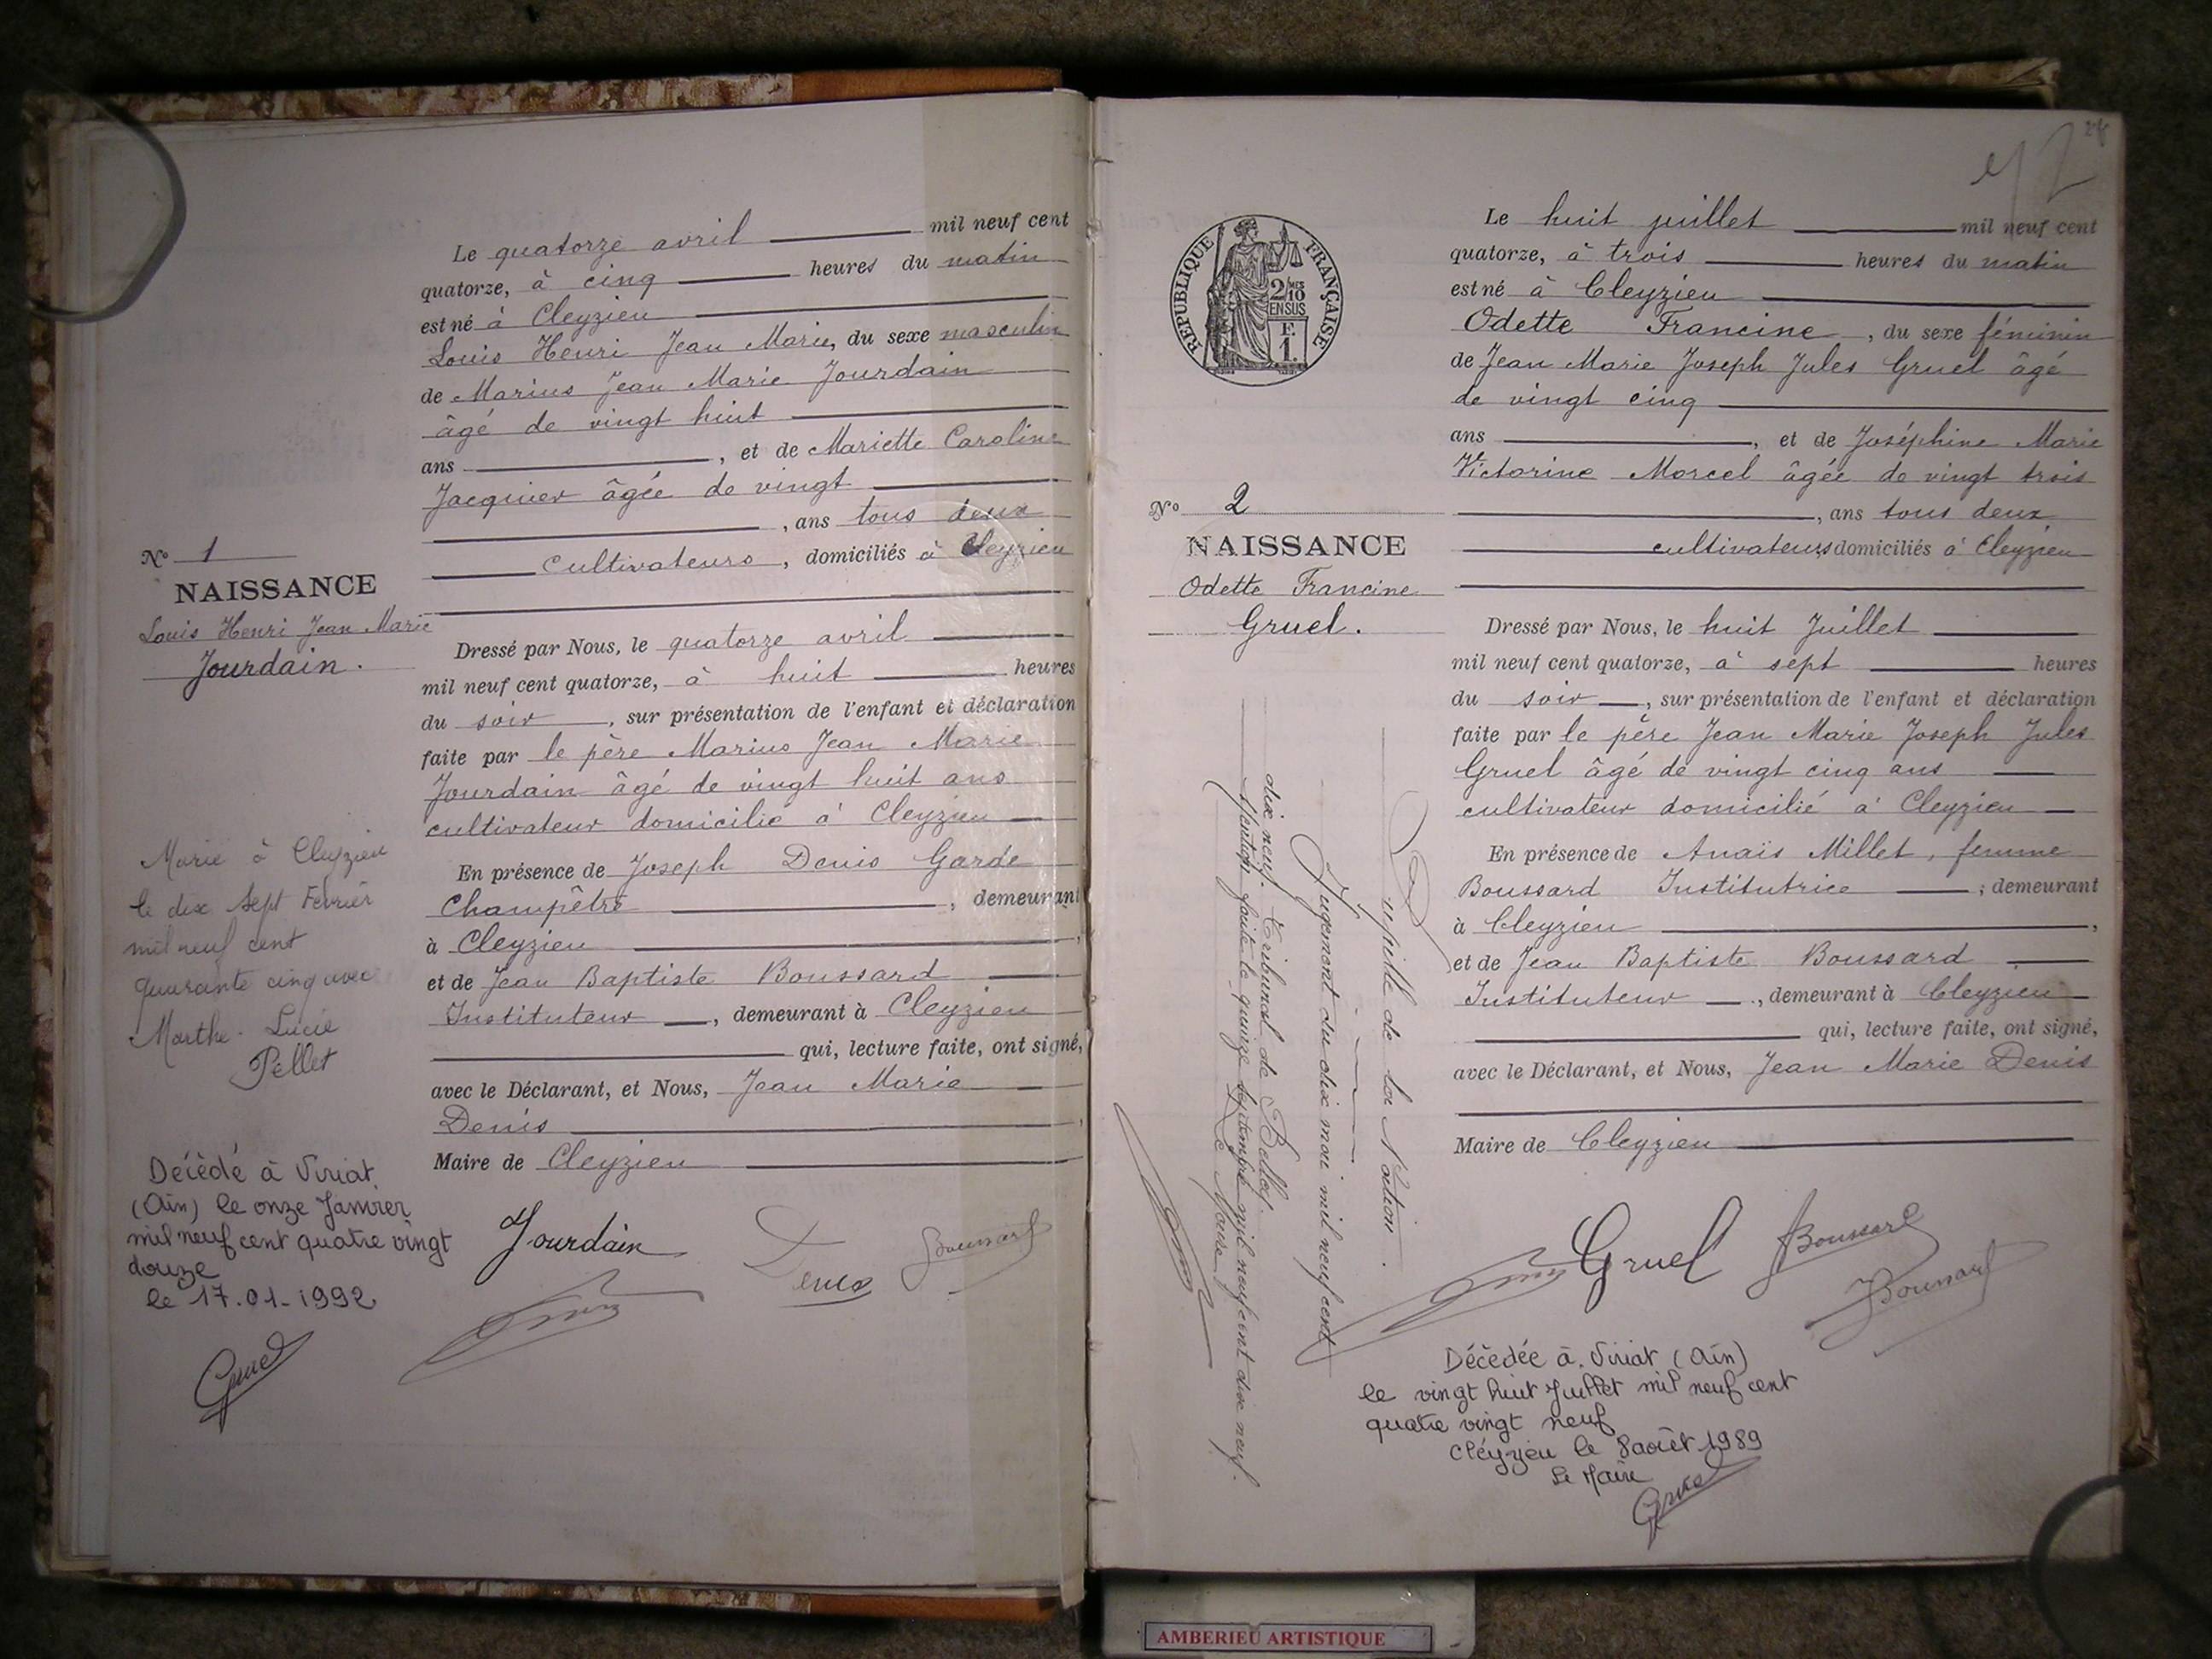 N° 1
NAISSANCE
Louis Henri Jean Marie
Jourdain.
Marié à Cleyzieu
le dix sept Fevrier
mil neuf cent
quarante cinq avec
Marthe - Lucie
Pellet
Décédé à Viriat
(Ain) le onze Janvier
mil neuf cent quatre vingt
douze
le 17.01-1992
Gruel
Le quatorze avril mil neuf cent
quatorze, à cinq heures du matin
est né à Cleyzieu
Louis Henri Jean Marie, du sexe masculin
de Marius Jean Marie Jourdain
âgé de vingt huit
ans , et de Mariette Caroline
Jacquier âgée de vingt
, ans tous deux
cultivateurs , domiciliés à Cleyzieu
Dressé par Nous, le quatorze avril
mil neuf cent quatorze, à huit heures
du soir , sur présentation de l'enfant et déclaration
faite par le père Marius Jean Marie
Jourdain âgé de vingt huit ans
cultivateur domicilié à Cleyzieu
En présence de Joseph Denis Garde
Champêtre , demeurant
à Cleyzieu ,
et de Jean Baptiste Boussard
Instituteur , demeurant à Cleyzieu
qui, lecture faite, ont signé,
avec le Déclarant, et Nous, Jean Marie
Denis ,
Maire de Cleyzieu
Jourdain Denis Boussard
Denis
24
REPUBLIQUE FRANÇAISE
2/MES
10
EN SUS
F.
1.
N° 2
NAISSANCE
Odette Francine
Gruel.
Pupille de la Nation.
Jugement du dix mai mil neuf cent
dix neuf. Tribunal de Belley.
Mention faite le quinze septembre mil neuf cent dix neuf.
Le Maire
Denis
Le huit juillet mil neuf cent
quatorze, à trois heures du matin
est né à Cleyzieu
Odette Francine , du sexe féminin
de Jean Marie Joseph Jules Gruel âgé
de vingt cinq
ans , et de Joséphine Marie
Victorine Morcel âgée de vingt trois
, ans tous deux
cultivateurs, domiciliés à Cleyzieu
Dressé par Nous, le huit Juillet
mil neuf cent quatorze, à sept heures
du soir , sur présentation de l'enfant et déclaration
faite par le père Jean Marie Joseph Jules
Gruel âgé de vingt cinq ans
cultivateur domicilié à Cleyzieu
En présence de Anaïs Millet, femme
Boussard Institutrice ; demeurant
à Cleyzieu ,
et de Jean Baptiste Boussard
Instituteur , demeurant à Cleyzieu
qui, lecture faite, ont signé,
avec le Déclarant, et Nous, Jean Marie Denis
Maire de Cleyzieu
Denis Gruel Boussard
Boussard
Décédée à Viriat (Ain)
le vingt huit Juillet mil neuf cent
quatre vingt neuf
Cleyzieu le 8 août 1989
Le Maire
Gruel
AMBERIEU ARTISTIQUE